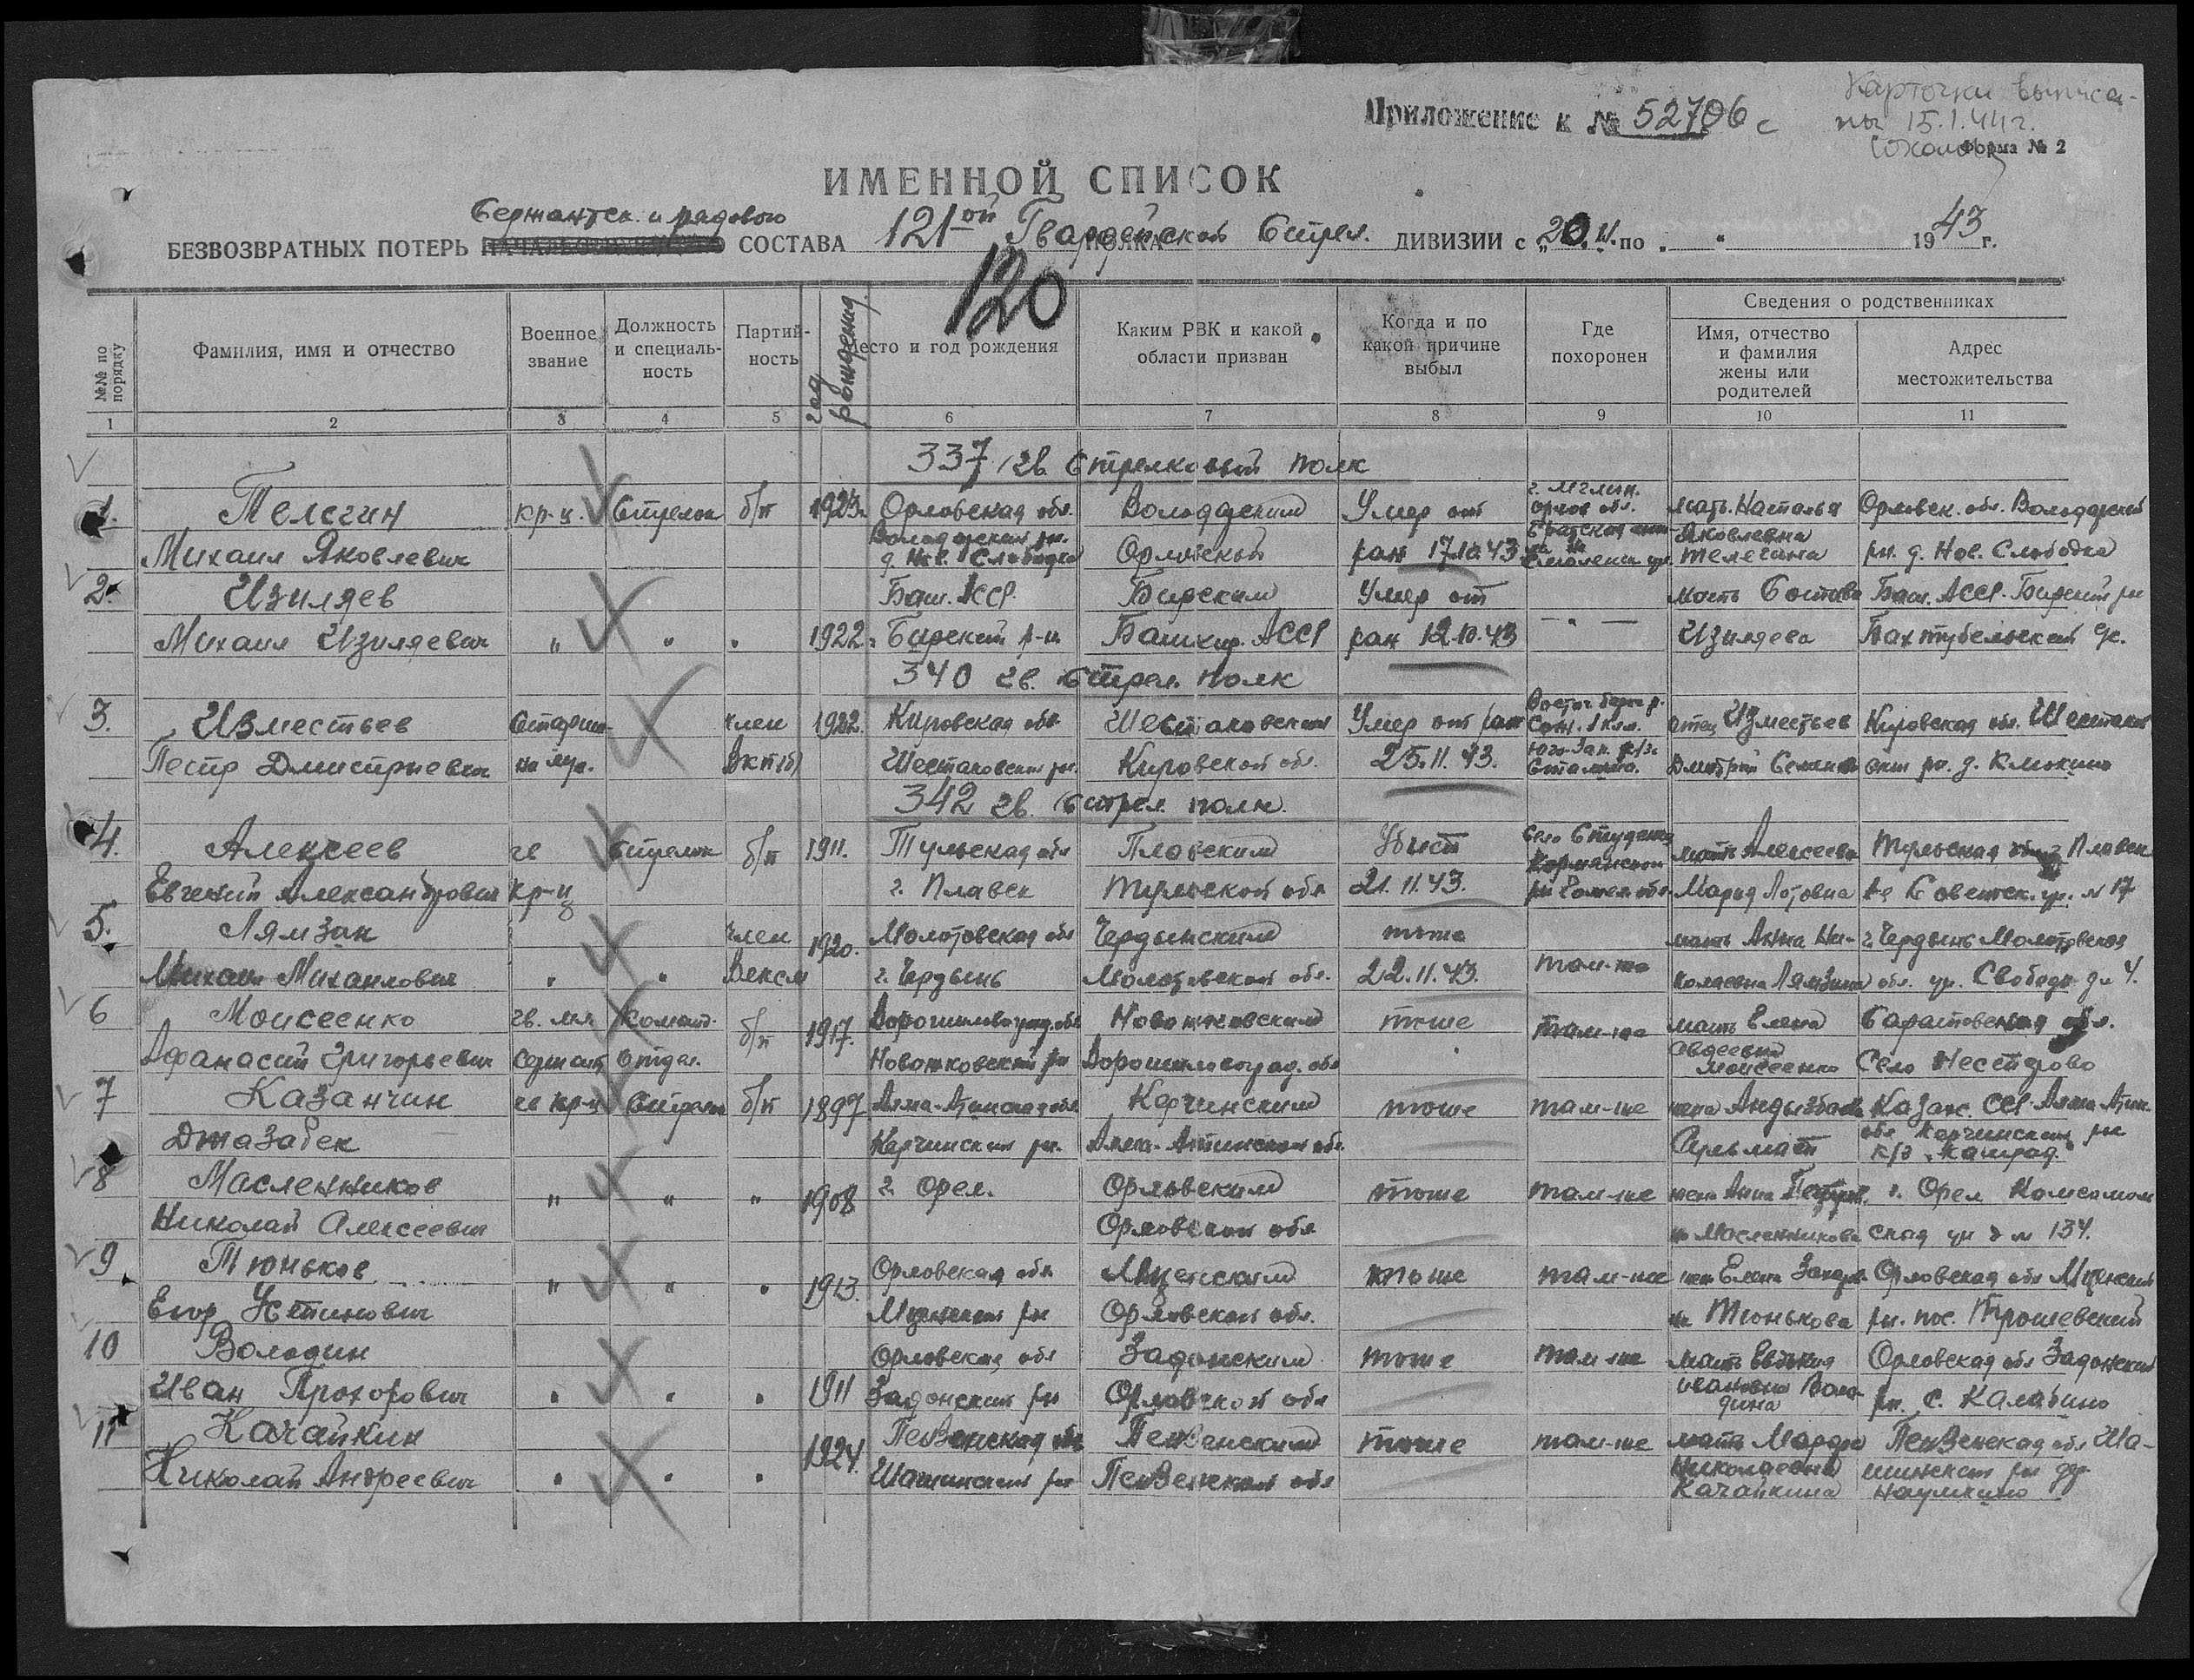 Приложение к № 52706 с
Карточки выписа-
ны 15.1.44 г.
Форма № 2
ИМЕННОЙ СПИСОК
Сержантск. и рядового
БЕЗВОЗВРАТНЫХ ПОТЕРЬ СОСТАВА 121ой Гвардейской Стрел. ДИВИЗИИ с „20.11. по „ “ 1943 г.
120
№№ по порядку
Фамилия, имя и отчество
Военное звание
Должность и специаль-ность
Партий-ность
год рождения
Место и год рождения
Каким РВК и какой области призван
Когда и по какой причине выбыл
Где похоронен
Сведения о родственниках
Имя, отчество и фамилия жены или родителей
Адрес местожительства
1 2 3 4 5 6 7 8 9 10 11
337 гв. Стрелковый полк
1. Телегин кр-ц. Стрелок б/п 1923 Орловская обл. Володарским Умер от г. Мглин. Орлов обл. мать Наталья Орловск. обл. Володарский
Михаил Яковлевич Володарский рн. д. Нов. Слободка Орловской ран 17.10.43 Братская Яковлевна Телегина рн. д. Нов. Слободка
2. Изиляев Баш. АССР. Бирским Умер от мать Баш. АССР. Бирский рн
Михаил Изиляевич " " " 1922 Бирский р-н Башкир. АССР ран 12.10.43 — " — Изиляева
340 гв. Стрел. полк
3. Изместьев Старши- член 1922 Кировская обл Шестаковским Умер от ран Восточ. берег р. Сож. 1 клм. отец Изместьев Кировская обл. Шестаков
Петр Дмитриевич на ВКП(б) Шестаковский рн. Кировской обл. 25.11.43. Юго-Зап. Дмитрий ский рн. д. Клюкино
342 гв. Стрел. полк.
4. Алексеев гв Стрелок б/п 1911. Тульская обл Плавским Убит Село Студенец мать Алексеева Тульская обл г Плавск
Евгений Александрович кр-ц г. Плавск Тульской обл 21.11.43. Кормянский рн Гомел обл. Мария Советск. ул. № 17
5. Лямзин член 1920. Молотовская обл Чердынским тоже мать Анна Ни- г. Чердынь Молотовская
Михаил Михайлович " " ВЛКСМ г. Чердынь Молотовской обл. 22.11.43. там-же колаевна Лямзина обл. ул. Свобода д. 4.
6 Моисеенко гв. мл Команд. б/п 1917. Ворошиловград. обл тоже там-же мать Елена Саратовская обл.
Афанасий Григорьевич Сержант отдел. Ворошиловград. обл Авдеевна Моисеенко Село Нестерово
7 Казанчин гв кр-ц Стрелок б/п 1897 Алма-Атинская обл Керчинским тоже там-же жена Казах. ССР Алма-Атин.
Джазабек Керчинский рн. Алма-Атинской обл. обл Керчинский рн
8 Масленников " " " 1908 г. Орел. Орловским тоже там-же жена Анна г. Орел Комсомоль
Николай Алексеевич Орловской обл Масленникова ская ул д № 134.
9 Тюньков " " " 1913. Орловская обл Мценским тоже там-же жен Елена Орловская обл Мценский
Егор Устинович Мценский рн Орловской обл. Тюнькова рн. пос. Трошевский
10 Володин Орловская обл Задонским тоже там-же мать Евдокия Орловская обл Задонский
Иван Прохорович " " " 1911 Задонский рн Орловской обл Ивановна Володина рн. с. Калабино
11 Качайкин Пензенская обл Пензенским тоже там-же мать Марфа Пензенская обл Ша-
Николай Андреевич " " " 1924. Пензенской обл Николаевна Качайкина рн дер Наумкино